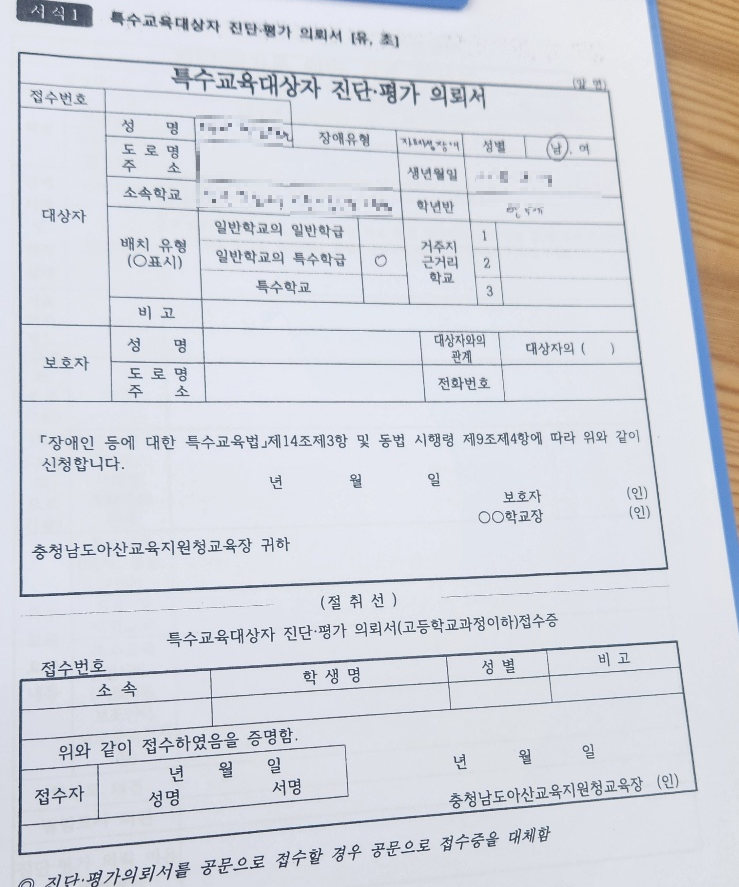 서식 1 특수교육대상자 진단·평가 의뢰서 [유, 초]
(앞 면)
특수교육대상자 진단·평가 의뢰서
접수번호
대상자
성 명 장애유형 성별 남, 여
도로명 주 소 생년월일
소속학교 학년반
배치 유형 (○표시)
일반학교의 일반학급
일반학교의 특수학급 ○
특수학교
거주지 근거리 학교
1
2
3
비 고
보호자
성 명 대상자와의 관계 대상자의 ( )
도로명 주 소 전화번호
「장애인 등에 대한 특수교육법」제14조제3항 및 동법 시행령 제9조제4항에 따라 위와 같이
신청합니다.
년 월 일
보호자 (인)
○○학교장 (인)
충청남도아산교육지원청교육장 귀하
(절 취 선)
특수교육대상자 진단·평가 의뢰서(고등학교과정이하)접수증
접수번호
소 속 학 생 명 성 별 비 고
위와 같이 접수하였음을 증명함.
접수자
년 월 일
성명 서명
년 월 일
충청남도아산교육지원청교육장 (인)
◎ 진단·평가의뢰서를 공문으로 접수할 경우 공문으로 접수증을 대체함